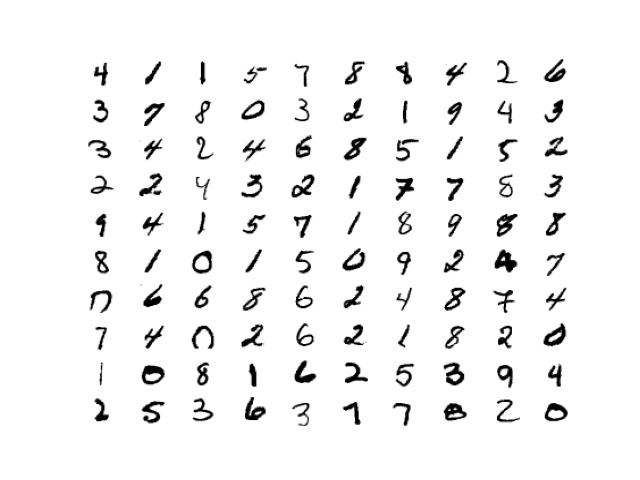 4 1 1 5 7 8 8 4 2 6
3 7 8 0 3 2 1 9 4 3
3 4 2 4 6 8 5 1 5 2
2 2 4 3 2 1 7 7 8 3
9 4 1 5 7 1 8 9 8 8
8 1 0 1 5 0 9 2 4 7
6 6 8 6 2 4 8 7 4
7 4 0 2 6 2 1 8 2 0
1 0 8 1 6 2 5 3 9 4
2 5 3 6 3 1 7 8 2 0